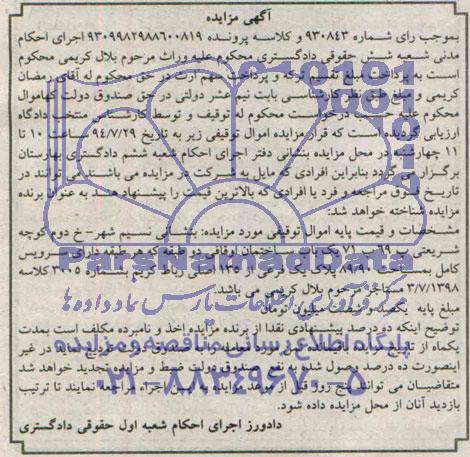 آگهی مزایده
بموجب رای شماره ۹۳۰۸۴۳ و کلاسه پرونده ۹۳۰۹۹۸۲۹۸۸۶۰۰۸۱۹ اجرای احکام
مدنی شعبه شش حقوقی دادگستری محکوم علیه وراث مرحوم بلال کریمی محکوم
است به پرداخت مبلغ تقسیم ترکه و پرداخت سهم ارث در حق محکوم له آقای رمضان
کریمی و مبلغ طق نظر کارشناسی بابت نیم عشر دولتی در حق صندوق دولت کهاموال
محکوم علیه حسب درخواست محکوم له توقیف و توسط کارشناس منتخب دادگاه
ارزیابی گردیده است که قرار مزایده اموال توقیفی زیر به تاریخ ۹۴/۷/۲۹ ساعت ۱۰ تا
۱۱ چهارشنبه در محل مزایده بنشانی دفتر اجرای احکام شعبه ششم دادگستری بهارستان
برگزار می گردد بنابراین افرادی که مایل به شرکت در مزایده می باشند می توانند در
تاریخ فوق مراجعه و فرد یا افرادی که بالاترین قیمت را پیشنهاد دهند به عنوان برنده
مزایده شناخته خواهد شد:
مشخصات و قیمت پایه اموال توقیفی مورد مزایده: بنشانی نسیم شهر-خ دوم کوچه
شریعتی پ ۶۹ ۷۱ یک باب ساختمان اوقافی در طبقه که هر طبقه دارای سرویس
کامل بمساحت ۸۹/۹۰ پلاک یک فرعی از ۱۳۵ اصلی رباط کریم بشماره ۳۰۰۵ کلاسه
۳/۷/۱۳۹۸ مرحوم بلال کریمی می باشد.
مبلغ پایه یکصد و هفت میلیون تومان
توضیح اینکه ده درصد پیشنهادی نقدا از برنده مزایده اخذ و نامبرده مکلف است بمدت
یکماه از تاریخ مزایده باقیمانده ثمن مورد معامله را به صندوق دولت تودیع نماید در غیر
اینصورت ده درصد وصول شده به نفع صندوق دولت ضبط و مزایده تجدید خواهد شد
متقاضیان می توانند پنج روز قبل از موعد مزایده به این اجراء مراجعه نمایند تا ترتیب
بازدید آنان از محل مزایده داده شود.
دادورز اجرای احکام شعبه اول حقوقی دادگستری
ParsNamadData
مرکز فرآوری اطلاعات پارس نماد داده ها
پایگاه اطلاع رسانی مناقصه و مزایده
۰۲۱-۸۸۳۴۹۶۷۰-۵